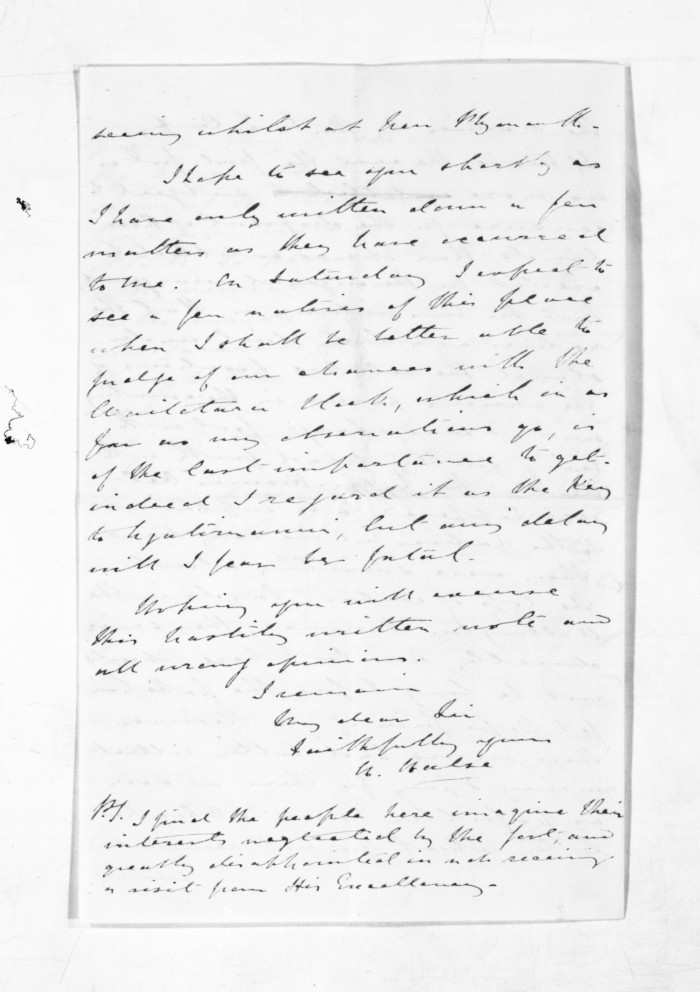 seeing whilst at New Plymouth.
I hope to see you shortly as
I have only written down a few
matters as they have occurred
to me. On Saturday I expect to
see a few natives of this place
when I shall be better able to
judge of our chances with the
Waitara Block, which in as
far as my observations go, is
of the last importance to get.
indeed I regard it as the Key
to but any delay
will I fear be fatal.
Hoping you will excuse
this hastily written note and
all wrong opinions.
I remain
My dear Sir
Faithfully yours
W. Halse
P.S. I find the people here imagine their
interests neglected by the Govt, and
greatly disappointed in not receiving
a visit from His Excellency.